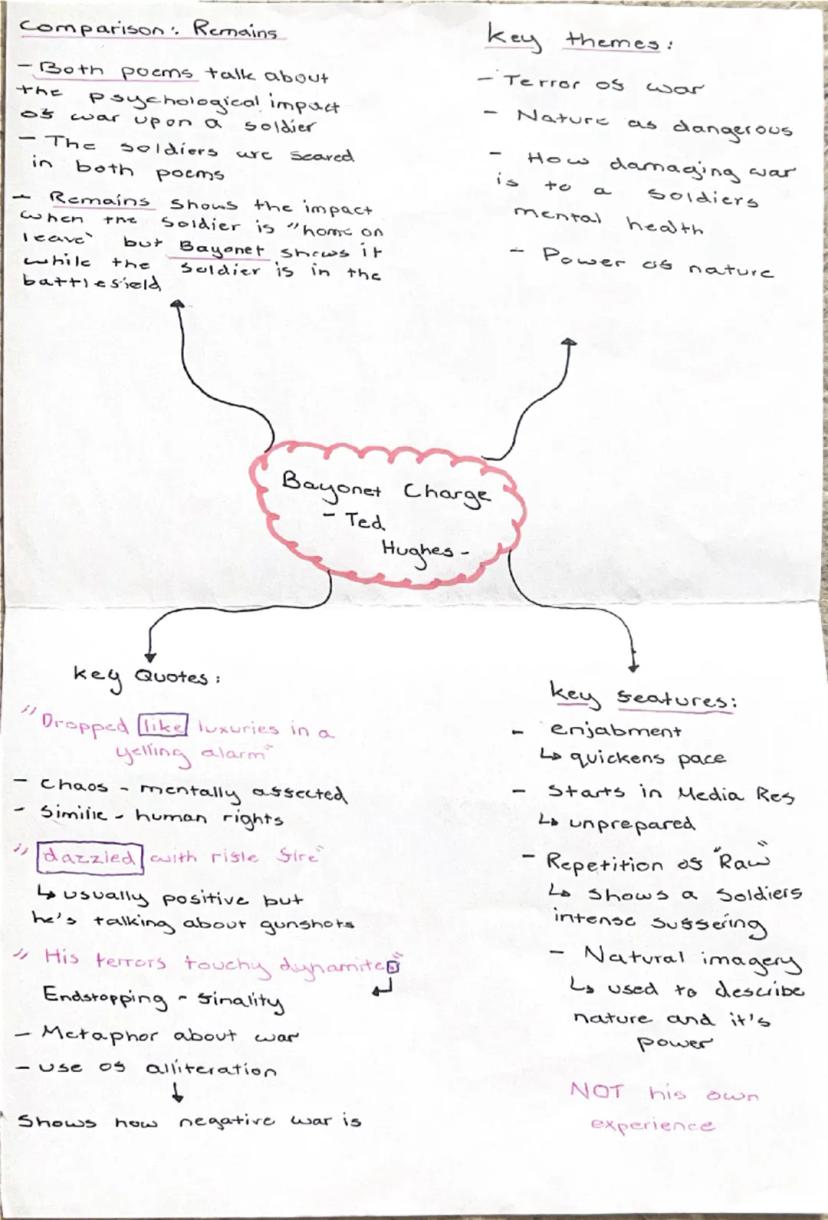 Comparison: Remains
- Both poems talk about
the psychological impact
of war upon a soldier
- The soldiers are scared
in both poems
- Remains shows the impact
when the soldier is "home on
leave" but Bayonet shows it
while the soldier is in the
battlefield
Key themes:
- Terror of war
- Nature as dangerous
- How damaging war
is to a soldiers
mental health
- Power of nature
Bayonet Charge
- Ted
Hughes -
Key Quotes:
"Dropped like luxuries in a
yelling alarm"
- Chaos - mentally affected
- Similie - human rights
"dazzled with rifle fire"
↳ usually positive but
he's talking about gunshots
"His terrors touchy dynamite."
Endstopping - finality
- Metaphor about war
- use of alliteration
↓
Shows how negative war is
Key features:
- enjabment
↳ quickens pace
- Starts in Media Res
↳ unprepared
- Repetition of "Raw"
↳ Shows a Soldiers
intense suffering
- Natural imagery
↳ used to describe
nature and it's
power
NOT his own
experience